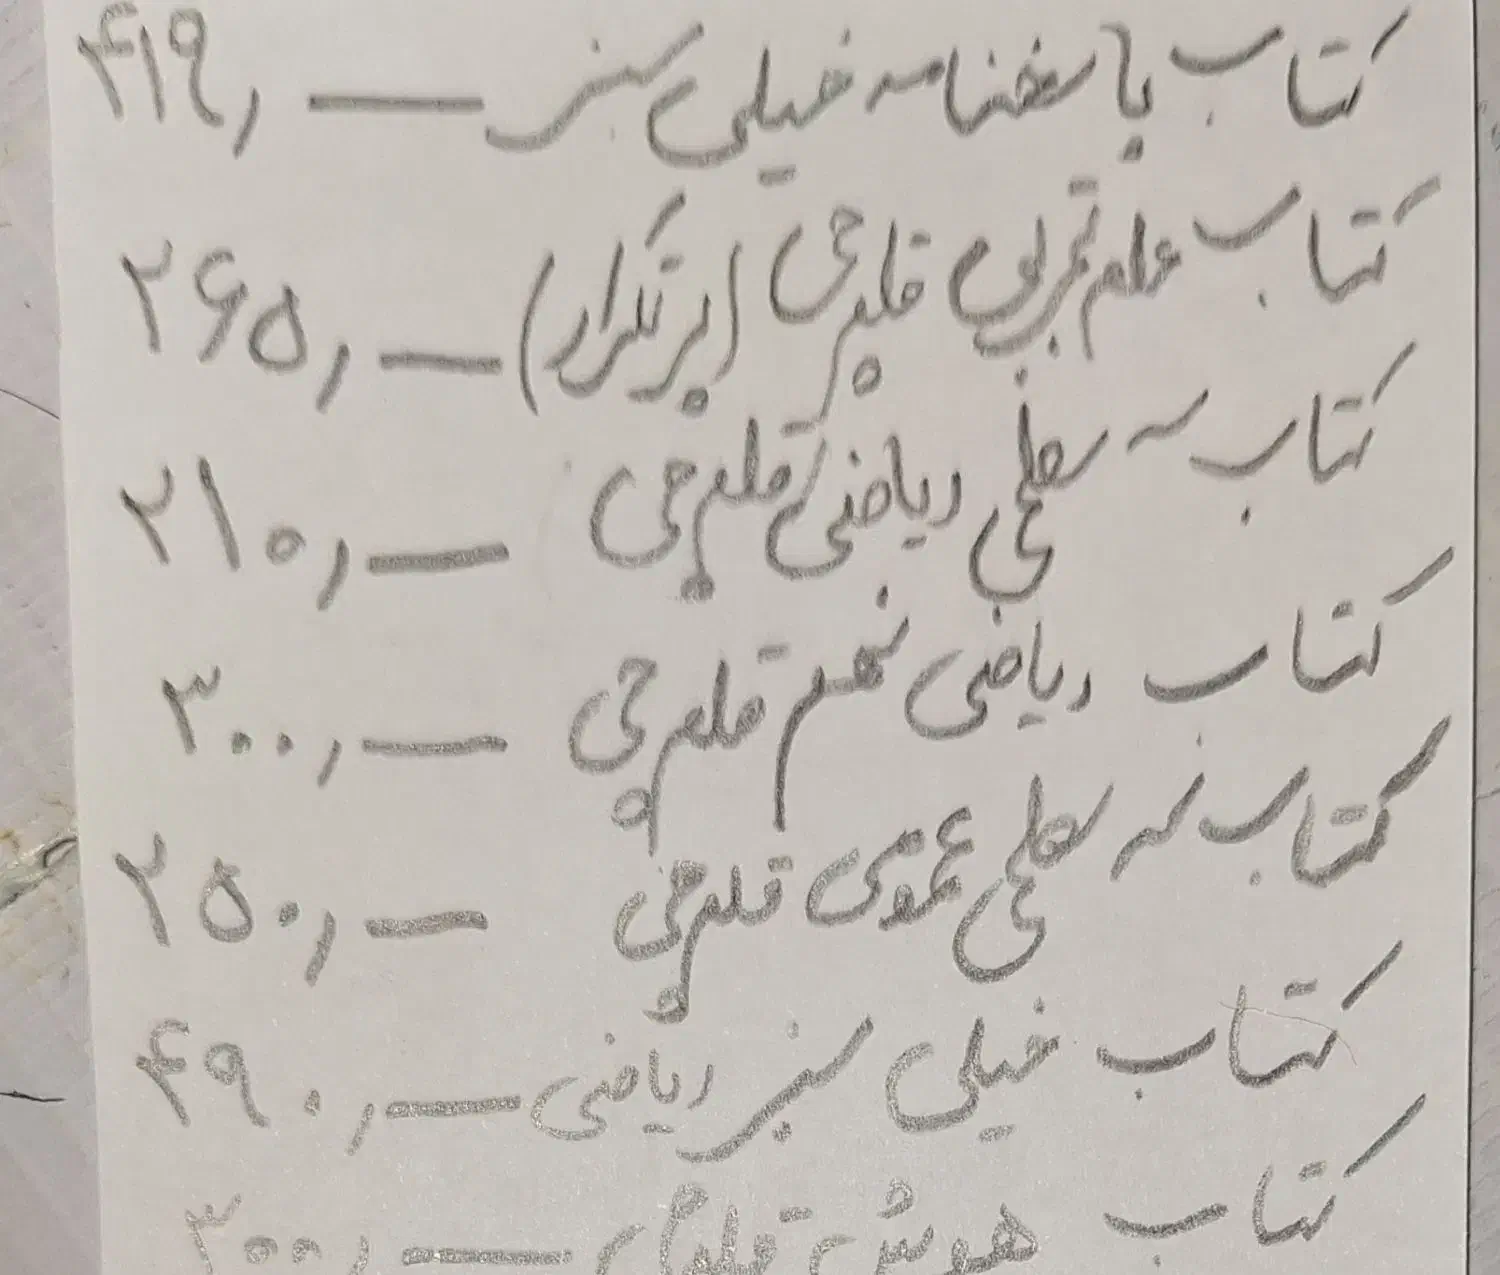 کتاب پاسخنامه خیلی سبز — ۴۱۹,
کتاب علوم تجربی قلم چی (پر تکرار) — ۲۶۵,
کتاب سه سطحی ریاضی قلم چی — ۲۱۰,
کتاب ریاضی نهم قلم چی — ۳۰۰,
کتاب سه سطحی عمومی قلم چی — ۲۵۰,
کتاب خیلی سبز ریاضی — ۴۹۰,
کتاب هوش قلم چی — ۳۰۰,